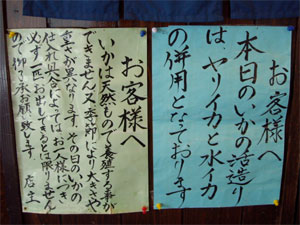 お客様へ
本日のいかの活造り
は、ヤリイカと水イカ
の併用となております
お客様へ
いかは天然もので養殖する事が
できません又、季節により大きさや
重さが異なります。その日のいかの
仕入れ具合によってはお一人様につき
必ず一匹お出しできるとは限りません
ので御了承お願い致します
店主